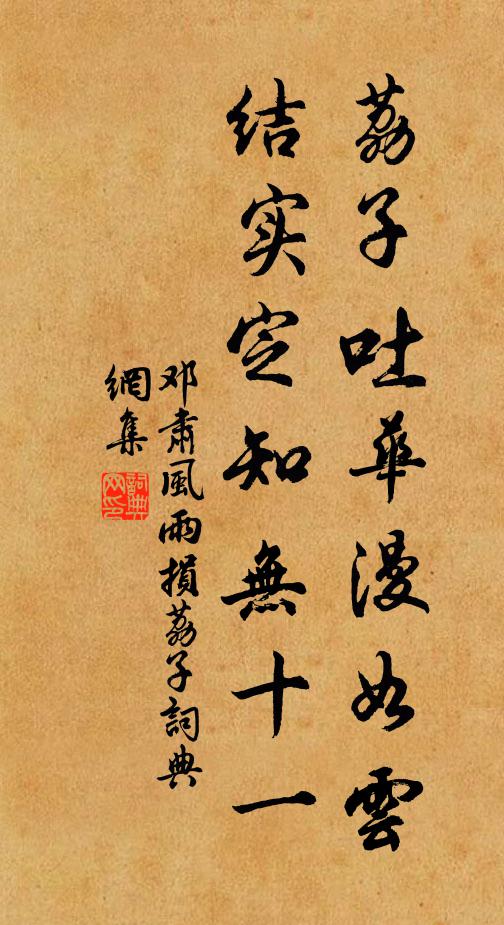 荔子吐華漫如雲
结实定知無十一
邓肅風雨損荔子詞典
網集
詞典网印